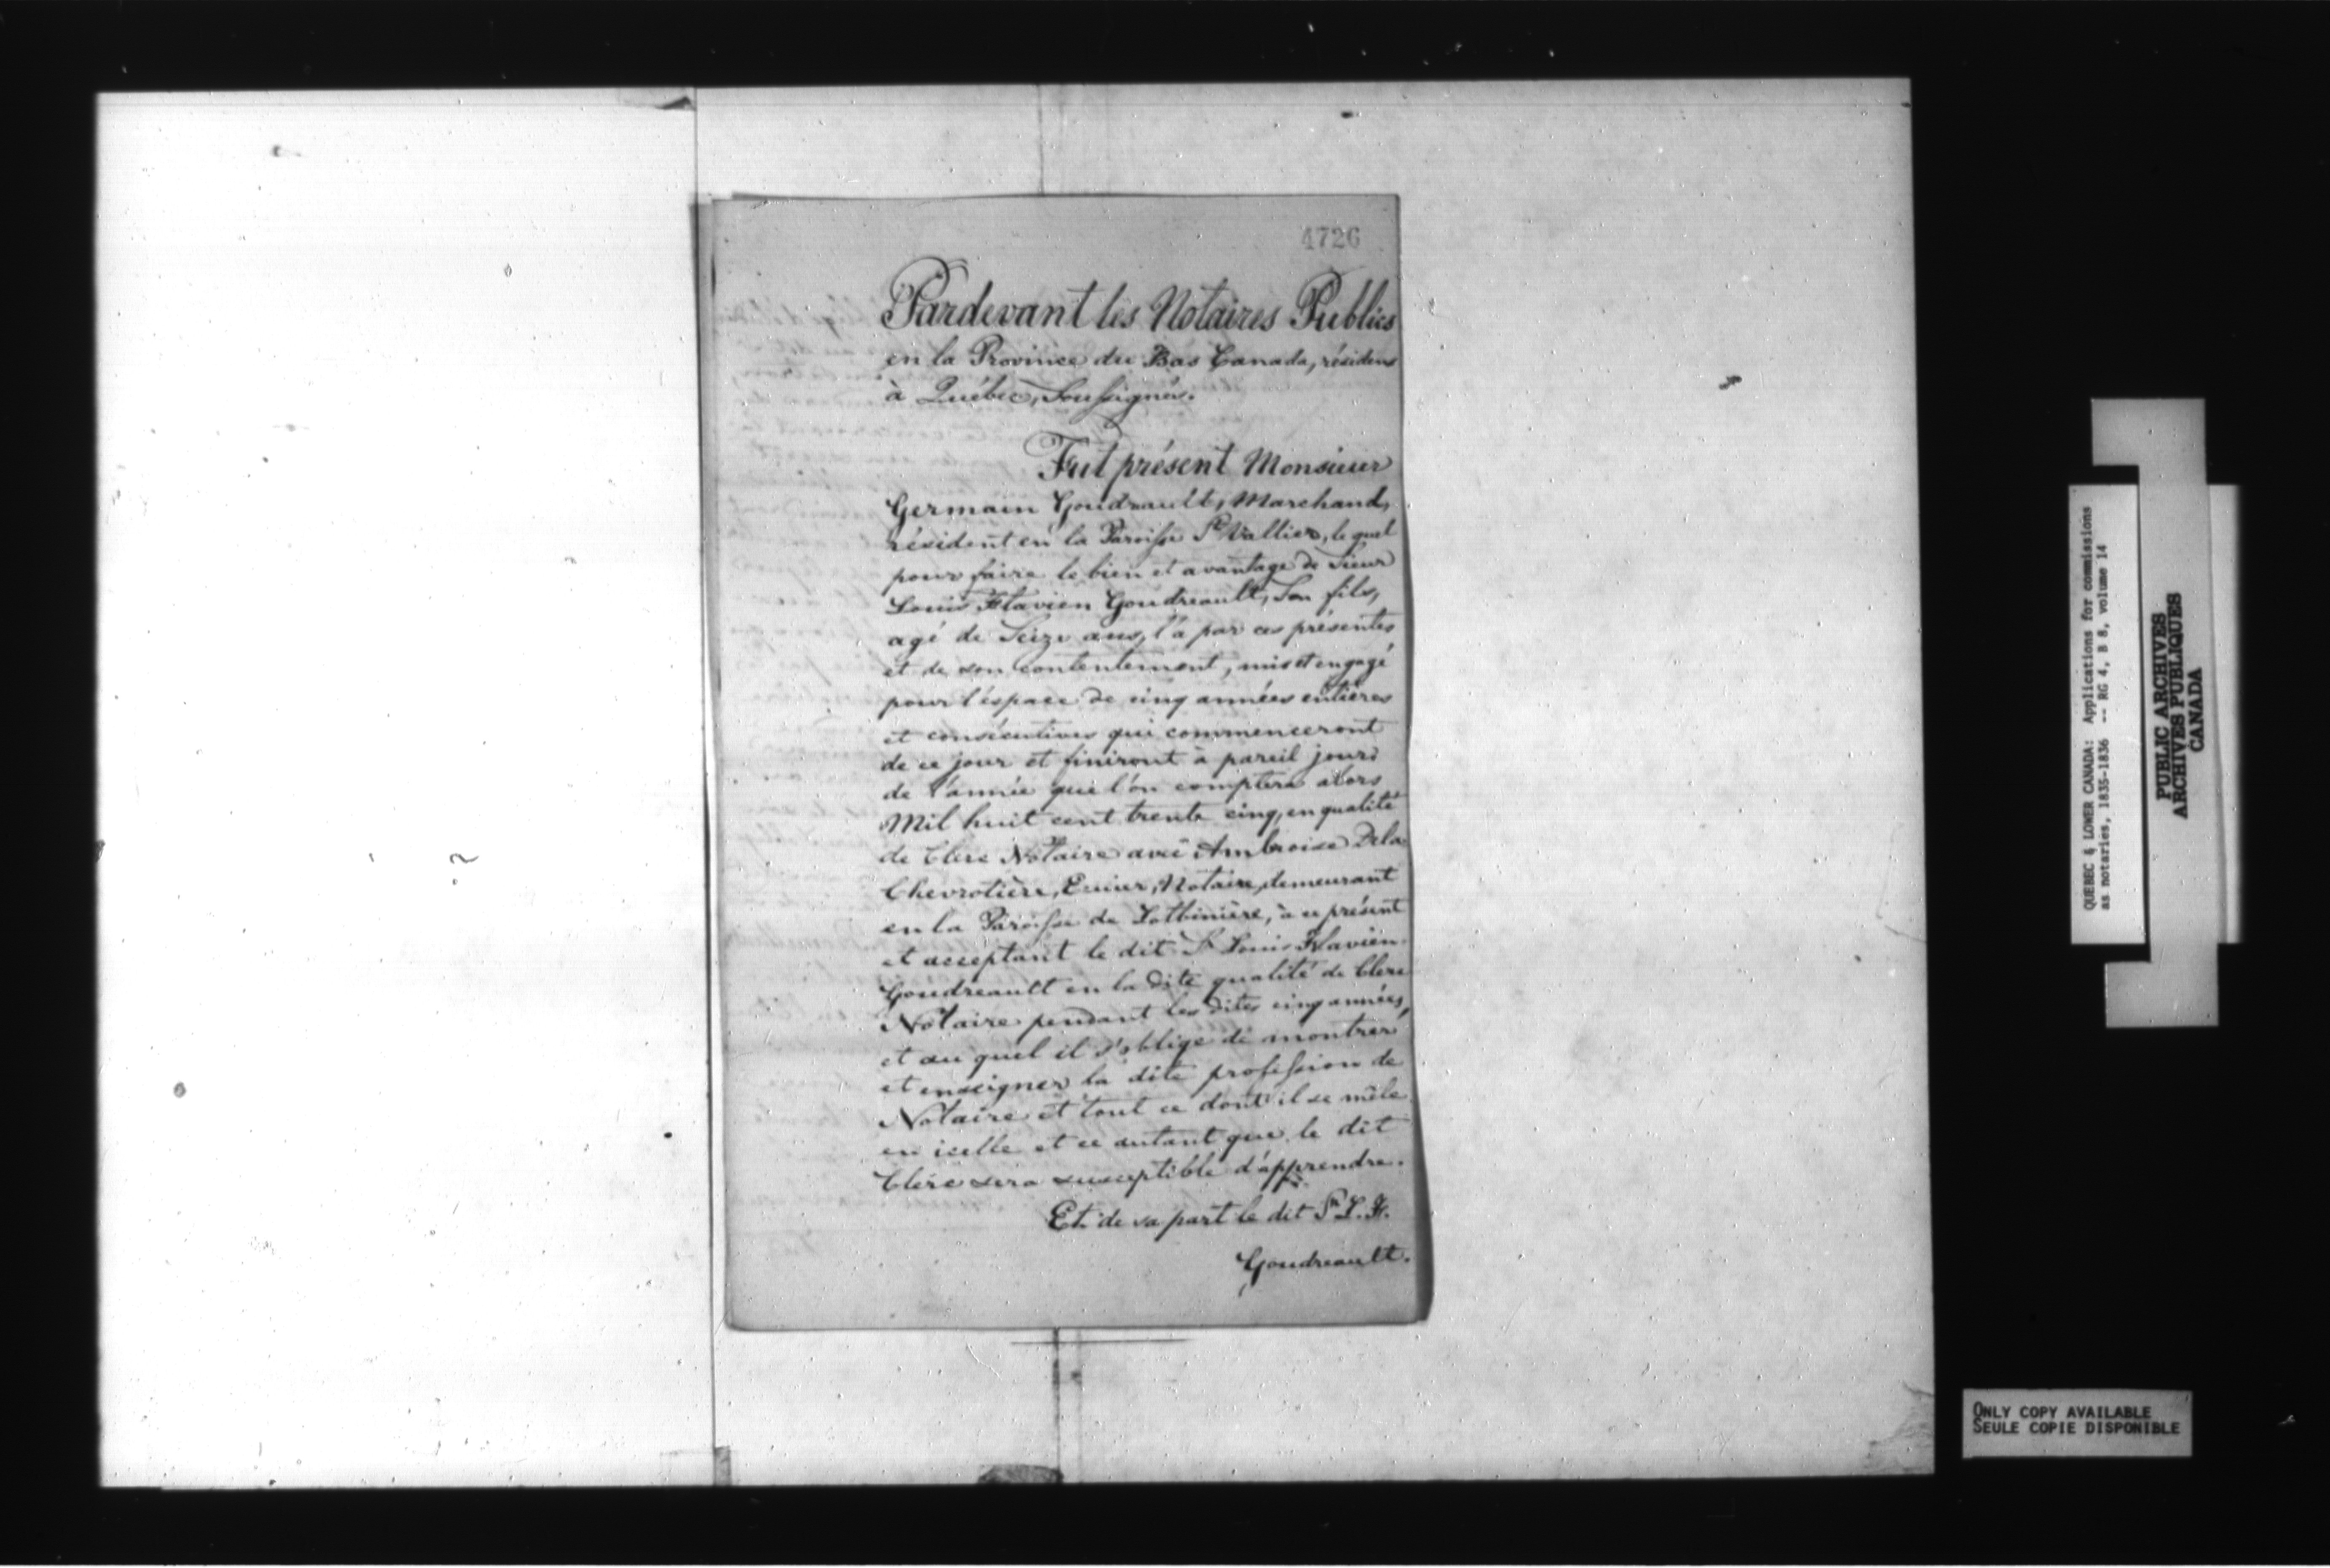 4726
Pardevant les Notaires Publics
en la Province du Bas Canada, résidens
à Québec, Soussignés.
Fut présent Monsieur
Germain Goudreault, Marchand,
résident en la Paroisse St Vallier, le quel
pour faire le bien et avantage de Sieur
Louis Flavien Goudreault, Son fils,
agé de Seize ans, l'a par ces présentes
et de son contentement, mis et engagé
pour l'éspace de cinq années entières
et consécutives qui commenceront
de ce jour et finiront à pareil jour
de l'année que l'on comptera alors
Mil huit cent trente cinq, en qualité
de Clerc Notaire avec Ambroise Dela
Chevrotière, Ecuier, Notaire, demeurant
en la Paroisse de Lotbinière, à ce présent
et acceptant le dit Sr Louis Flavien
Goudreault en la dite qualité de Clerc
Notaire pendant les dites cinq années,
et au quel il s'oblige de montrer
et enseigner la dite profession de
Notaire et tout ce dont il se mêle
en icelle et ce autant que le dit
Clerc sera susceptible d'apprendre.
Et de sa part le dit Sr L. F.
Goudreault.
QUEBEC & LOWER CANADA: Applications for commissions
as notaries, 1835-1836 -- RG 4, B 8, volume 14
PUBLIC ARCHIVES
ARCHIVES PUBLIQUES
CANADA
ONLY COPY AVAILABLE
SEULE COPIE DISPONIBLE